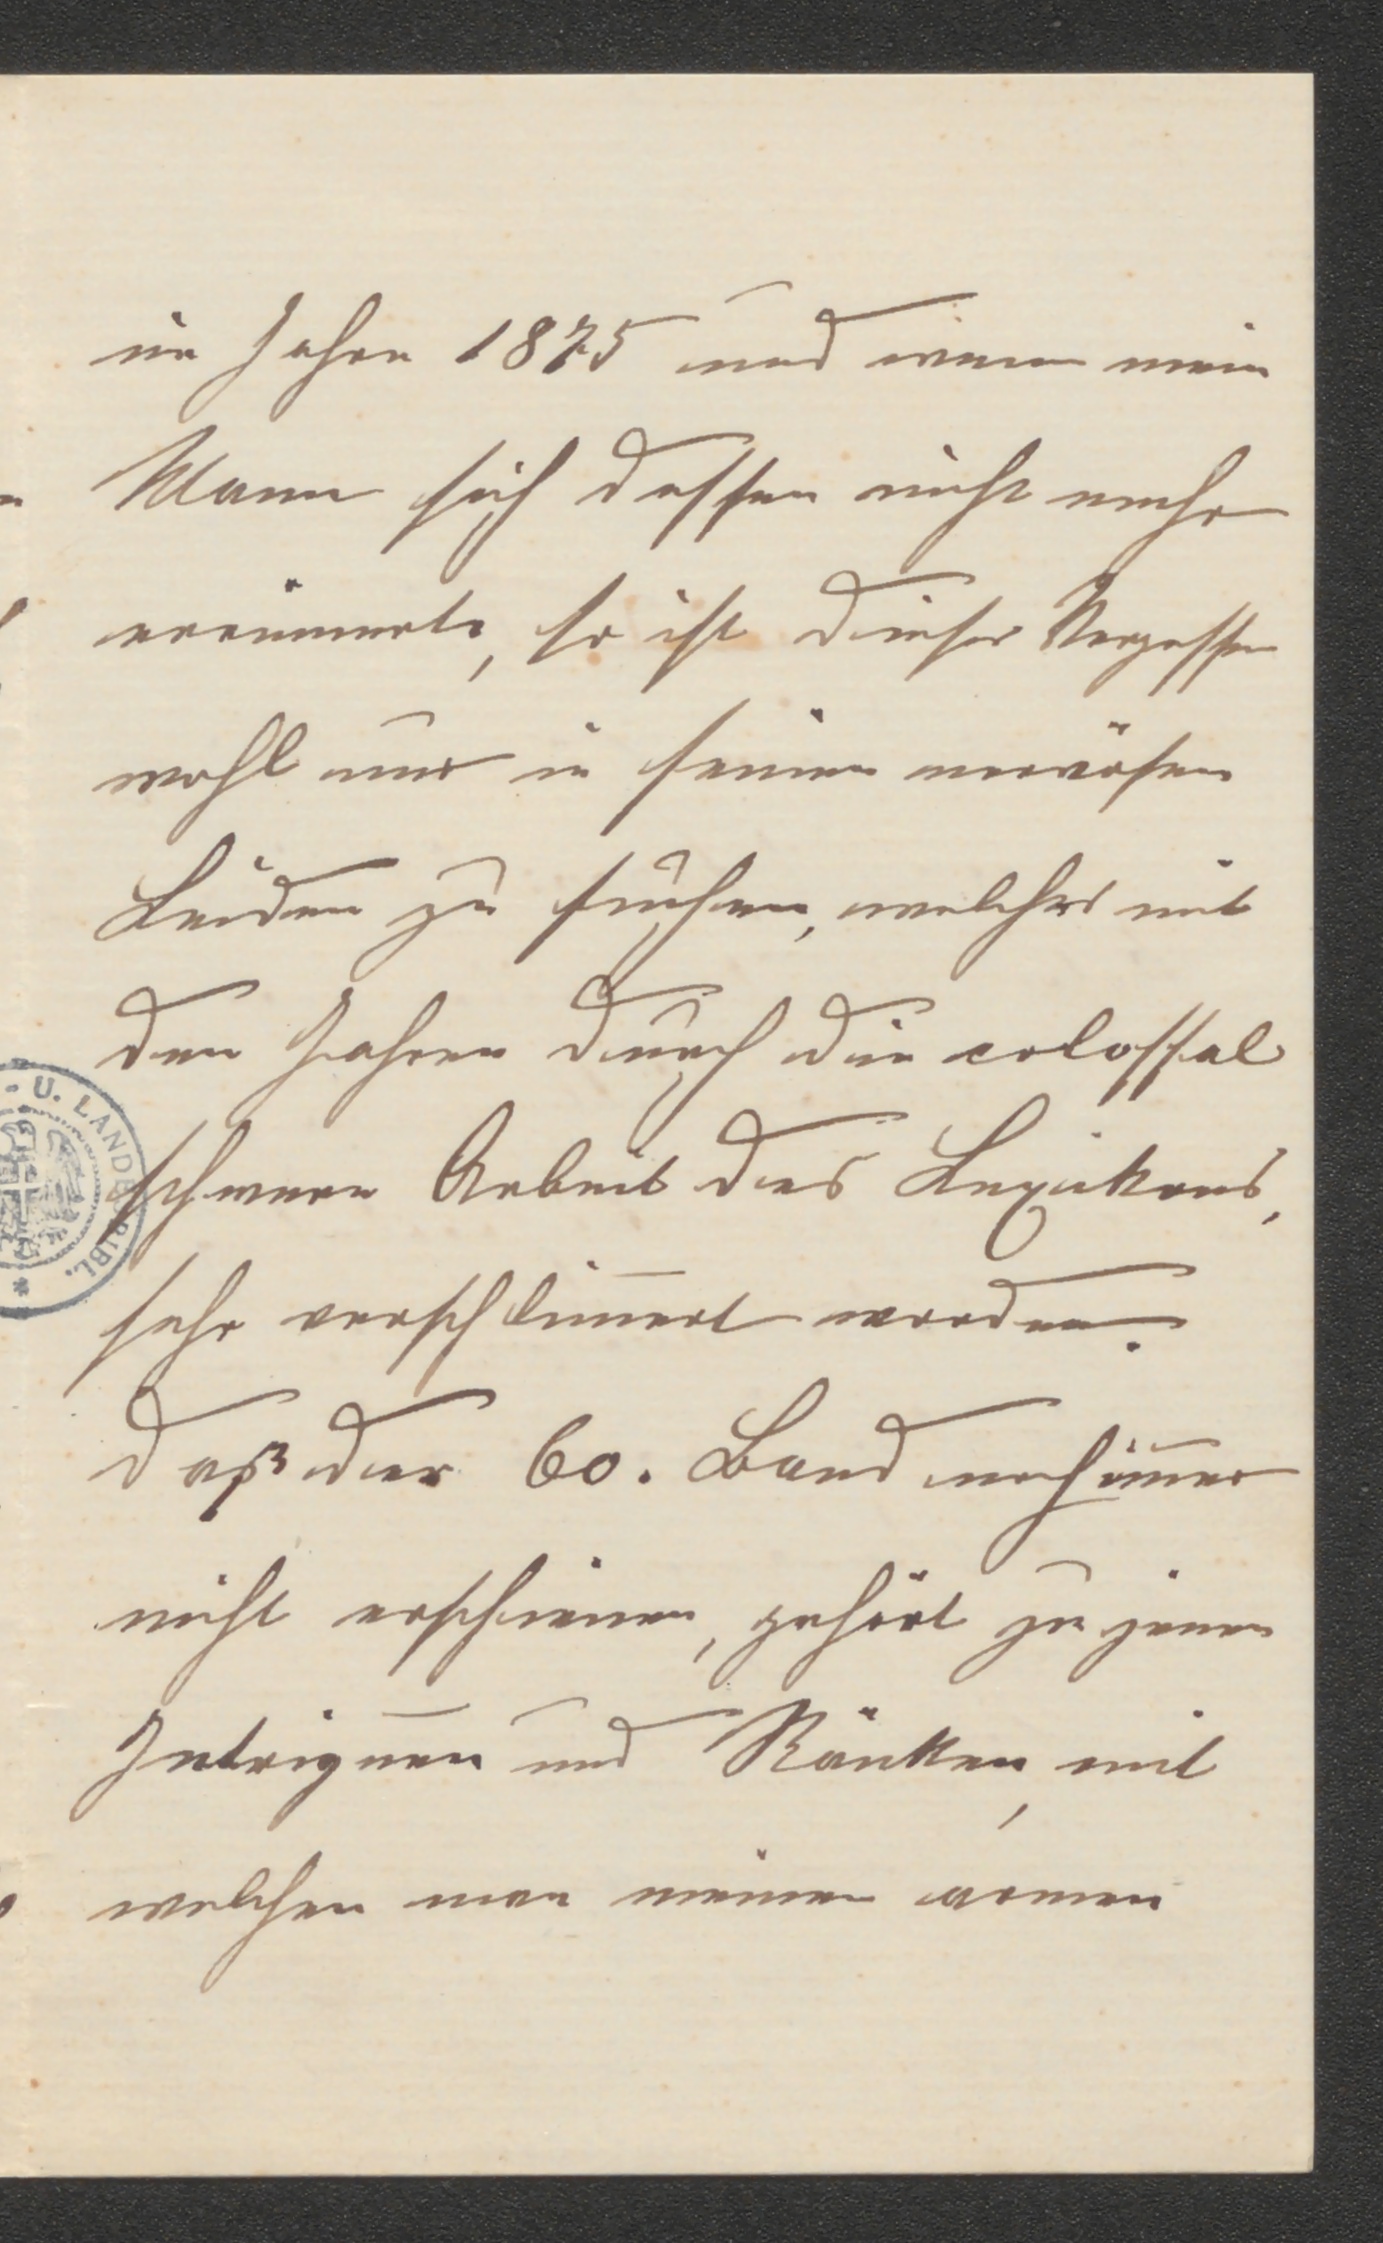 im Jahre 1875 und wenn mein
Mann sich dessen nicht mehr
erinnerte, so ist dieses Vergessen
wohl nur in seinem nervösen
Leiden zu suchen, welches mit
den Jahren durch die colossal
schwere Arbeit des Lexikons,
sehr verschlimmert worden.
Daß der 60. Band noch immer
nicht erschienen, gehört zu jenen
Intriguen und Ränken, mit
welchen man meinen armen
- U. LANDESBIBL. *